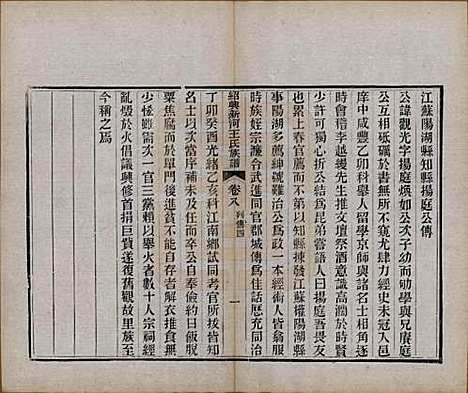 江蘇陽湖縣知縣揚庭公傳
公諱觀光字揚庭煥如公次子幼勤學與兄賡庭
公互相砥礪於書無所不窺尤肆力經史未冠入邑
庠中咸豐乙卯科舉人留學京師與諸名士相角逐
時會稽李越縵先生方執文壇祭酒意氣高於時賢
少許可獨心折公結爲昆弟嘗語人曰揚庭吾畏友
也累上春官薦而不第以知縣揀發江蘇權陽湖縣
事陽湖多薦紳號難治公爲政一本經術人皆翕服
時族姓宗濂合武進同官郡城傳爲佳話歷充同治
丁卯癸酉光緒乙亥科江南鄉試同考官所拔皆知
名士以次當補官
紹興新河王氏族譜
卷八
列傳四
一
粟焦腐而於單門後進才畯者解衣推食無
少恡雖需次一官三黨賴以舉火者數十人宗祠經
亂燬於火倡議興修首捐巨貲遂復舊觀故里族至
今稱之焉